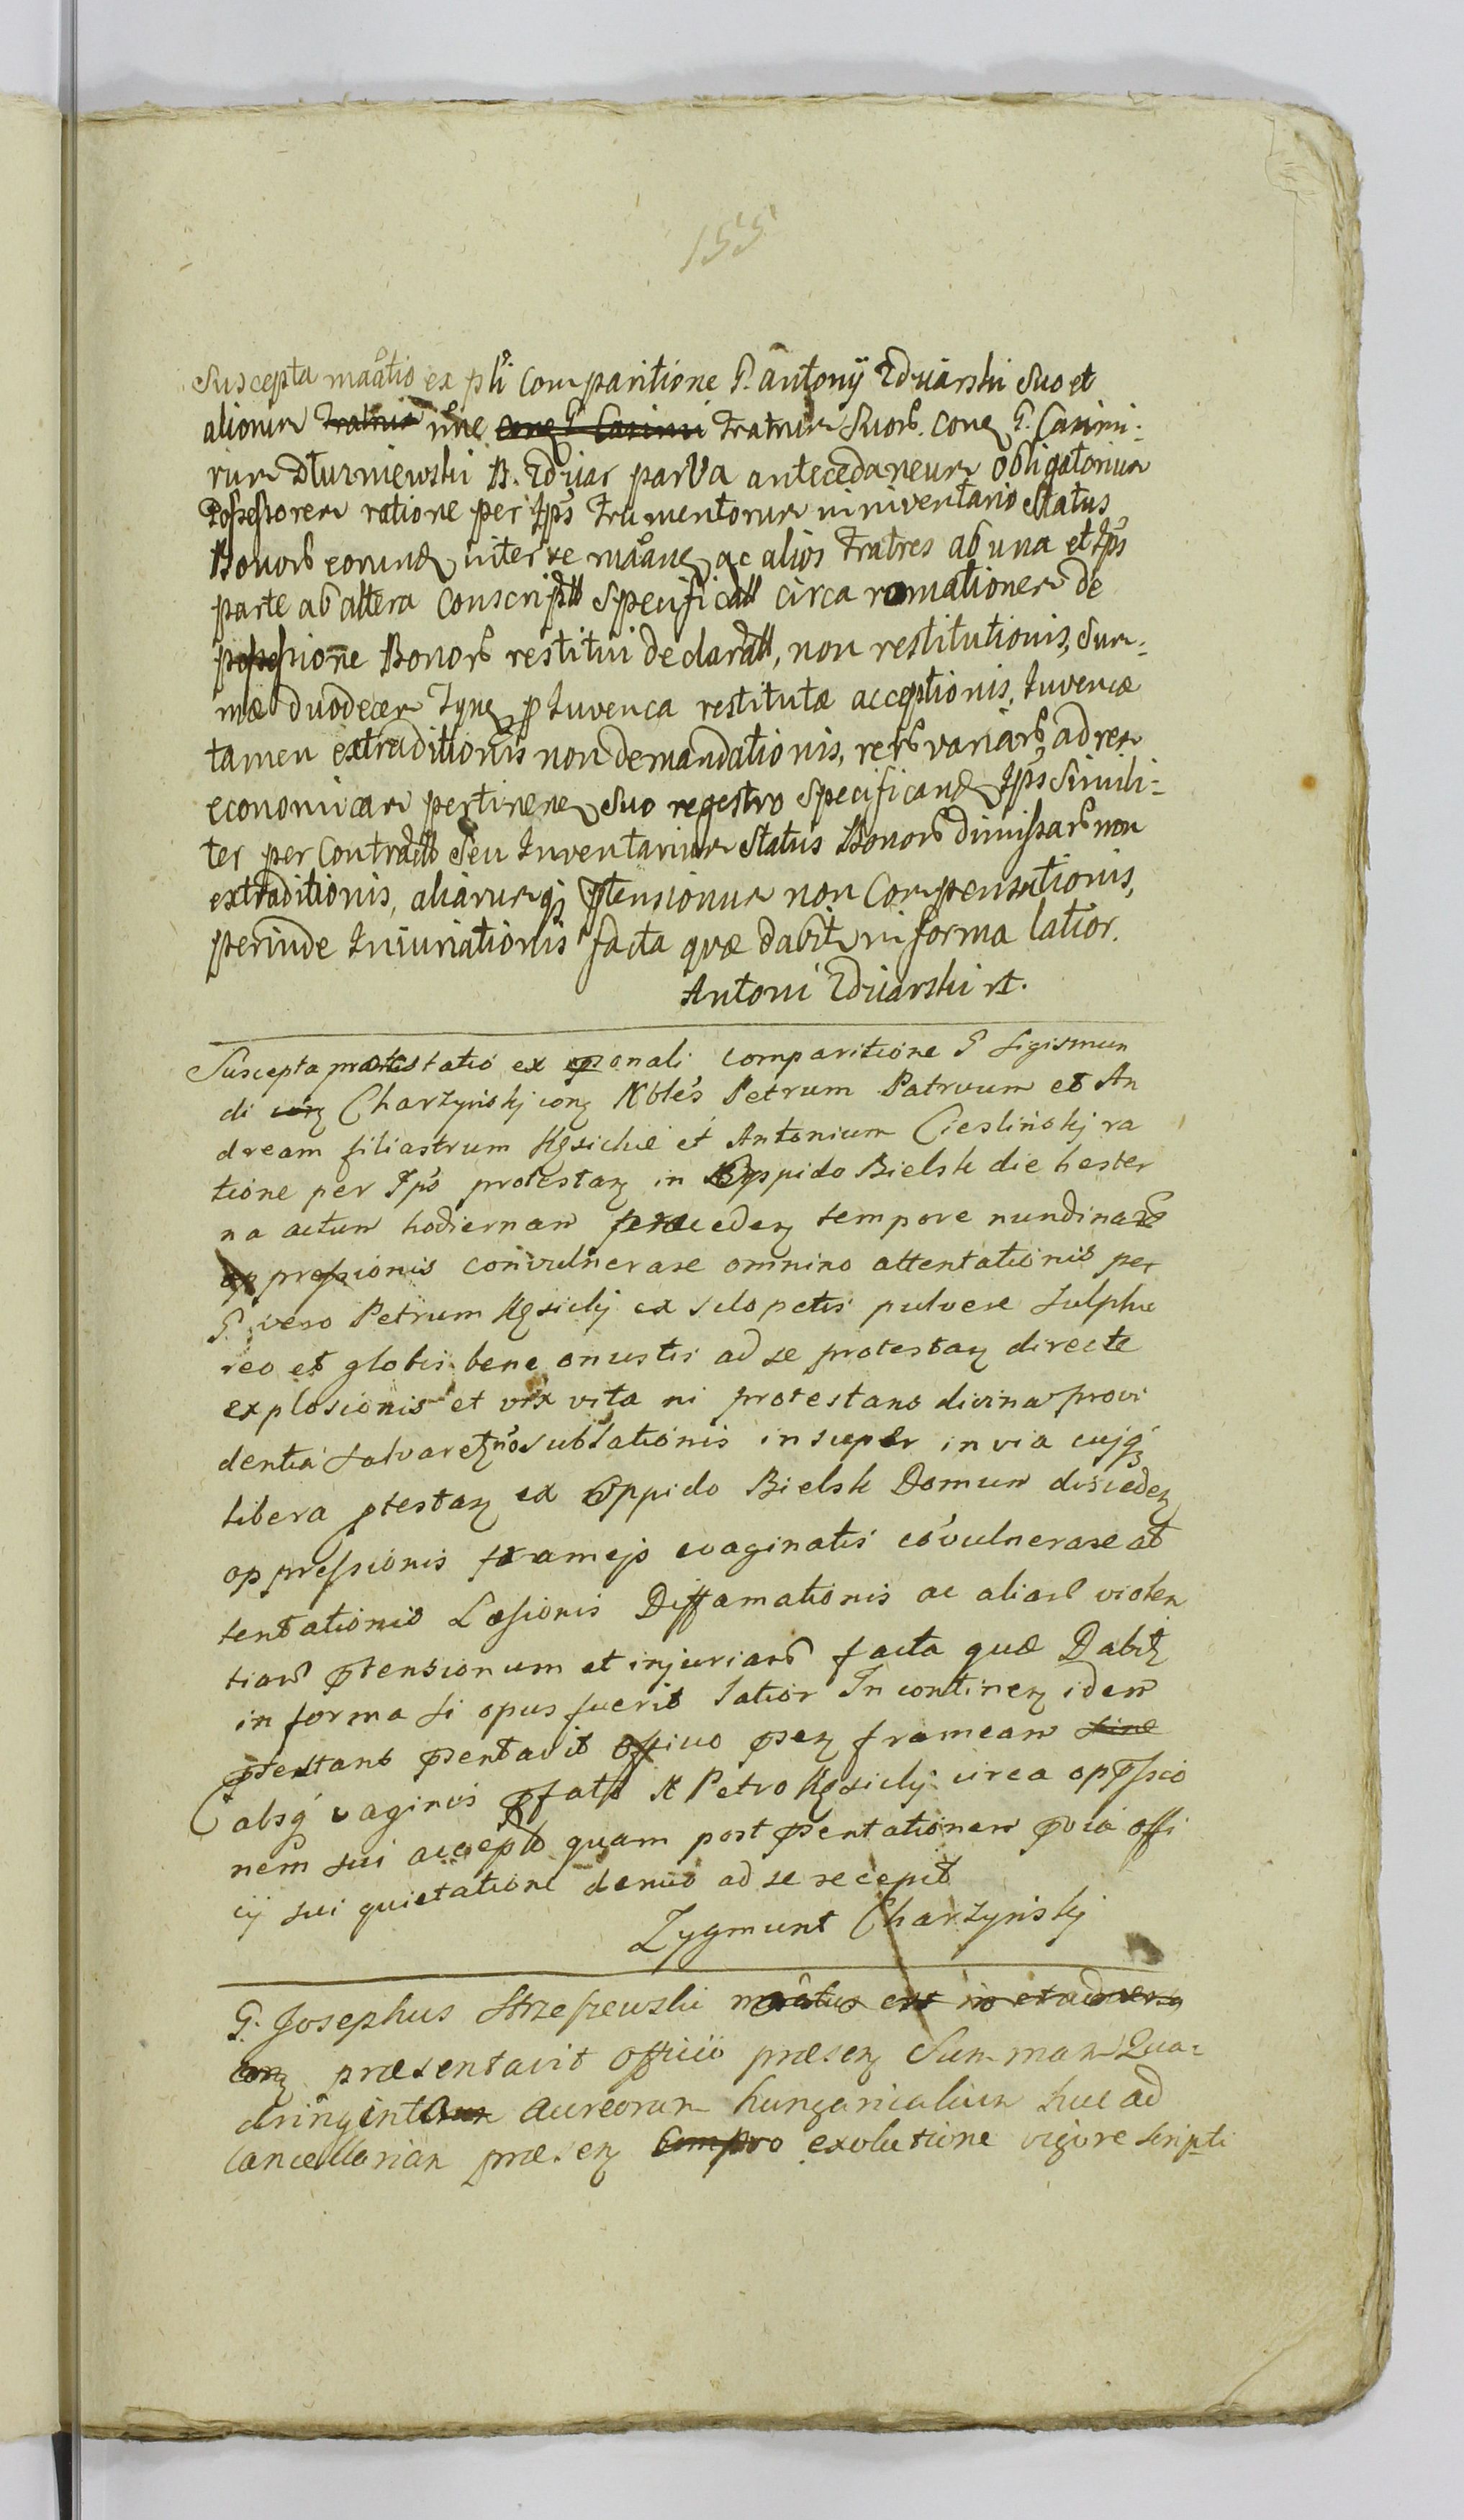 155
Suscepta maãtio ex pľi Comparitione G. Antonij Zdziarski Suo et
aliorum fratrum nñe conq̃ G. Casimi fratrum Suorb. Conq̃ G. Casimi:
rum Dłuzniewski B. Zdziar parva antecedaneum obligatorium
Possessorem ratione per Ips̃ frumentorum in inventario Status
Bonorb eorund inter se maãnq̃ ac alios fratres ab una et Ips̃
parte ab altera Conscript Specificat circa romationem de
possessione Bonorb restitui declarat, non restitutionis, Sum:
mæ duodecem Tynf p Juvenca restitutæ acceptionis, Juvencæ
tamen extraditionis non demandationis, rerb variarb ad rem
economicam pertinen suo regestro Specificand Ips̃ Simili:
ter per Contract Seu Inventarium Status Bonorb dimissarb non
extraditionis, aliarumq; ptensionum non Compensationis,
perinde Iniuriationis facta quæ dabit in forma latior.
Antoni Zdziarski rt.
Suscepta protestatio ex psonali comparitione G Sigismun
di conq̃ Charzyński conq̃ Nbles Petrum Patruum et An
dream filiastrum Kęsickie et Antonium Ciesliński ra
tione per Ips̃ protestan in Oppido Bielsk die hester
na actum hodiernam præceden tempore nundinarb
oppressionis convulnerare omnino attentationis per
G. vero Petrum Kęsicki ex sclopetis pulvere sulphu
reo et globis bene onustis ad se protestan directe
explosionis et vix vita ni protestans divina provi
dentia salvaret nõ sublationis insuper in via cujq;
libera ptestan ex Oppido Bielsk Domum disceden
oppressionis frameis evaginatis cõvulnerare at
tentationis Læsionis Diffamationis ac aliarb violen
tiarb ptensionum et injuriarb facta quæ Dabit
in forma si opus fuerit latior In continen idem
ptestans psentavit officio psen frameam sine
absq; vaginis pfato N Petro Kęsicki circa oppssio
nem sui accept quam post psentationem pvia offi
cij sui quietatione denuo ad se recepit
Zygmunt Charzyński
G. Josephus Strzeszewski maãtus est in et adversq
conq̃ præsentavit officio præsen Summam Qua:
dringentarum aureorum hungaricalium huc ad
Cancellariam præsen Compro exolutione vigore scripti